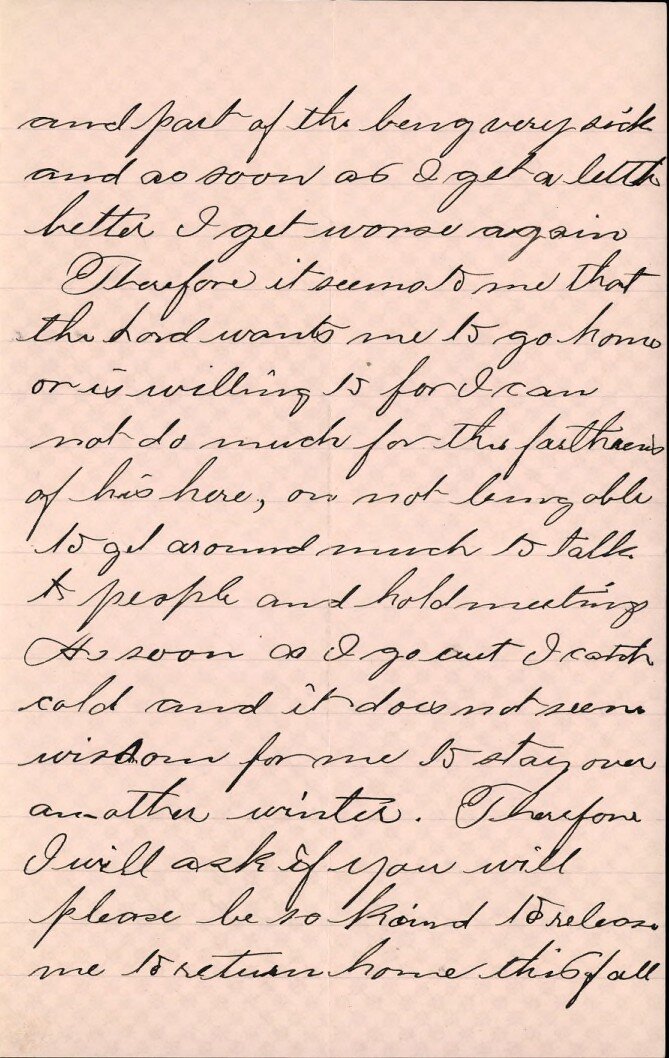 and part of the being very sick
and as soon as I get a little
better I get worse again
Therefore it seems to me that
the Lord wants me to go home
or is willing to for I can
not do much for the
of his here, on not being able
to get around much to talk
to people and hold meetings
As soon as I go out I catch
cold and it does not seem
wisdom for me to stay over
another winter. Therefore
I will ask if you will
please be so kind to release
me to return home this fall